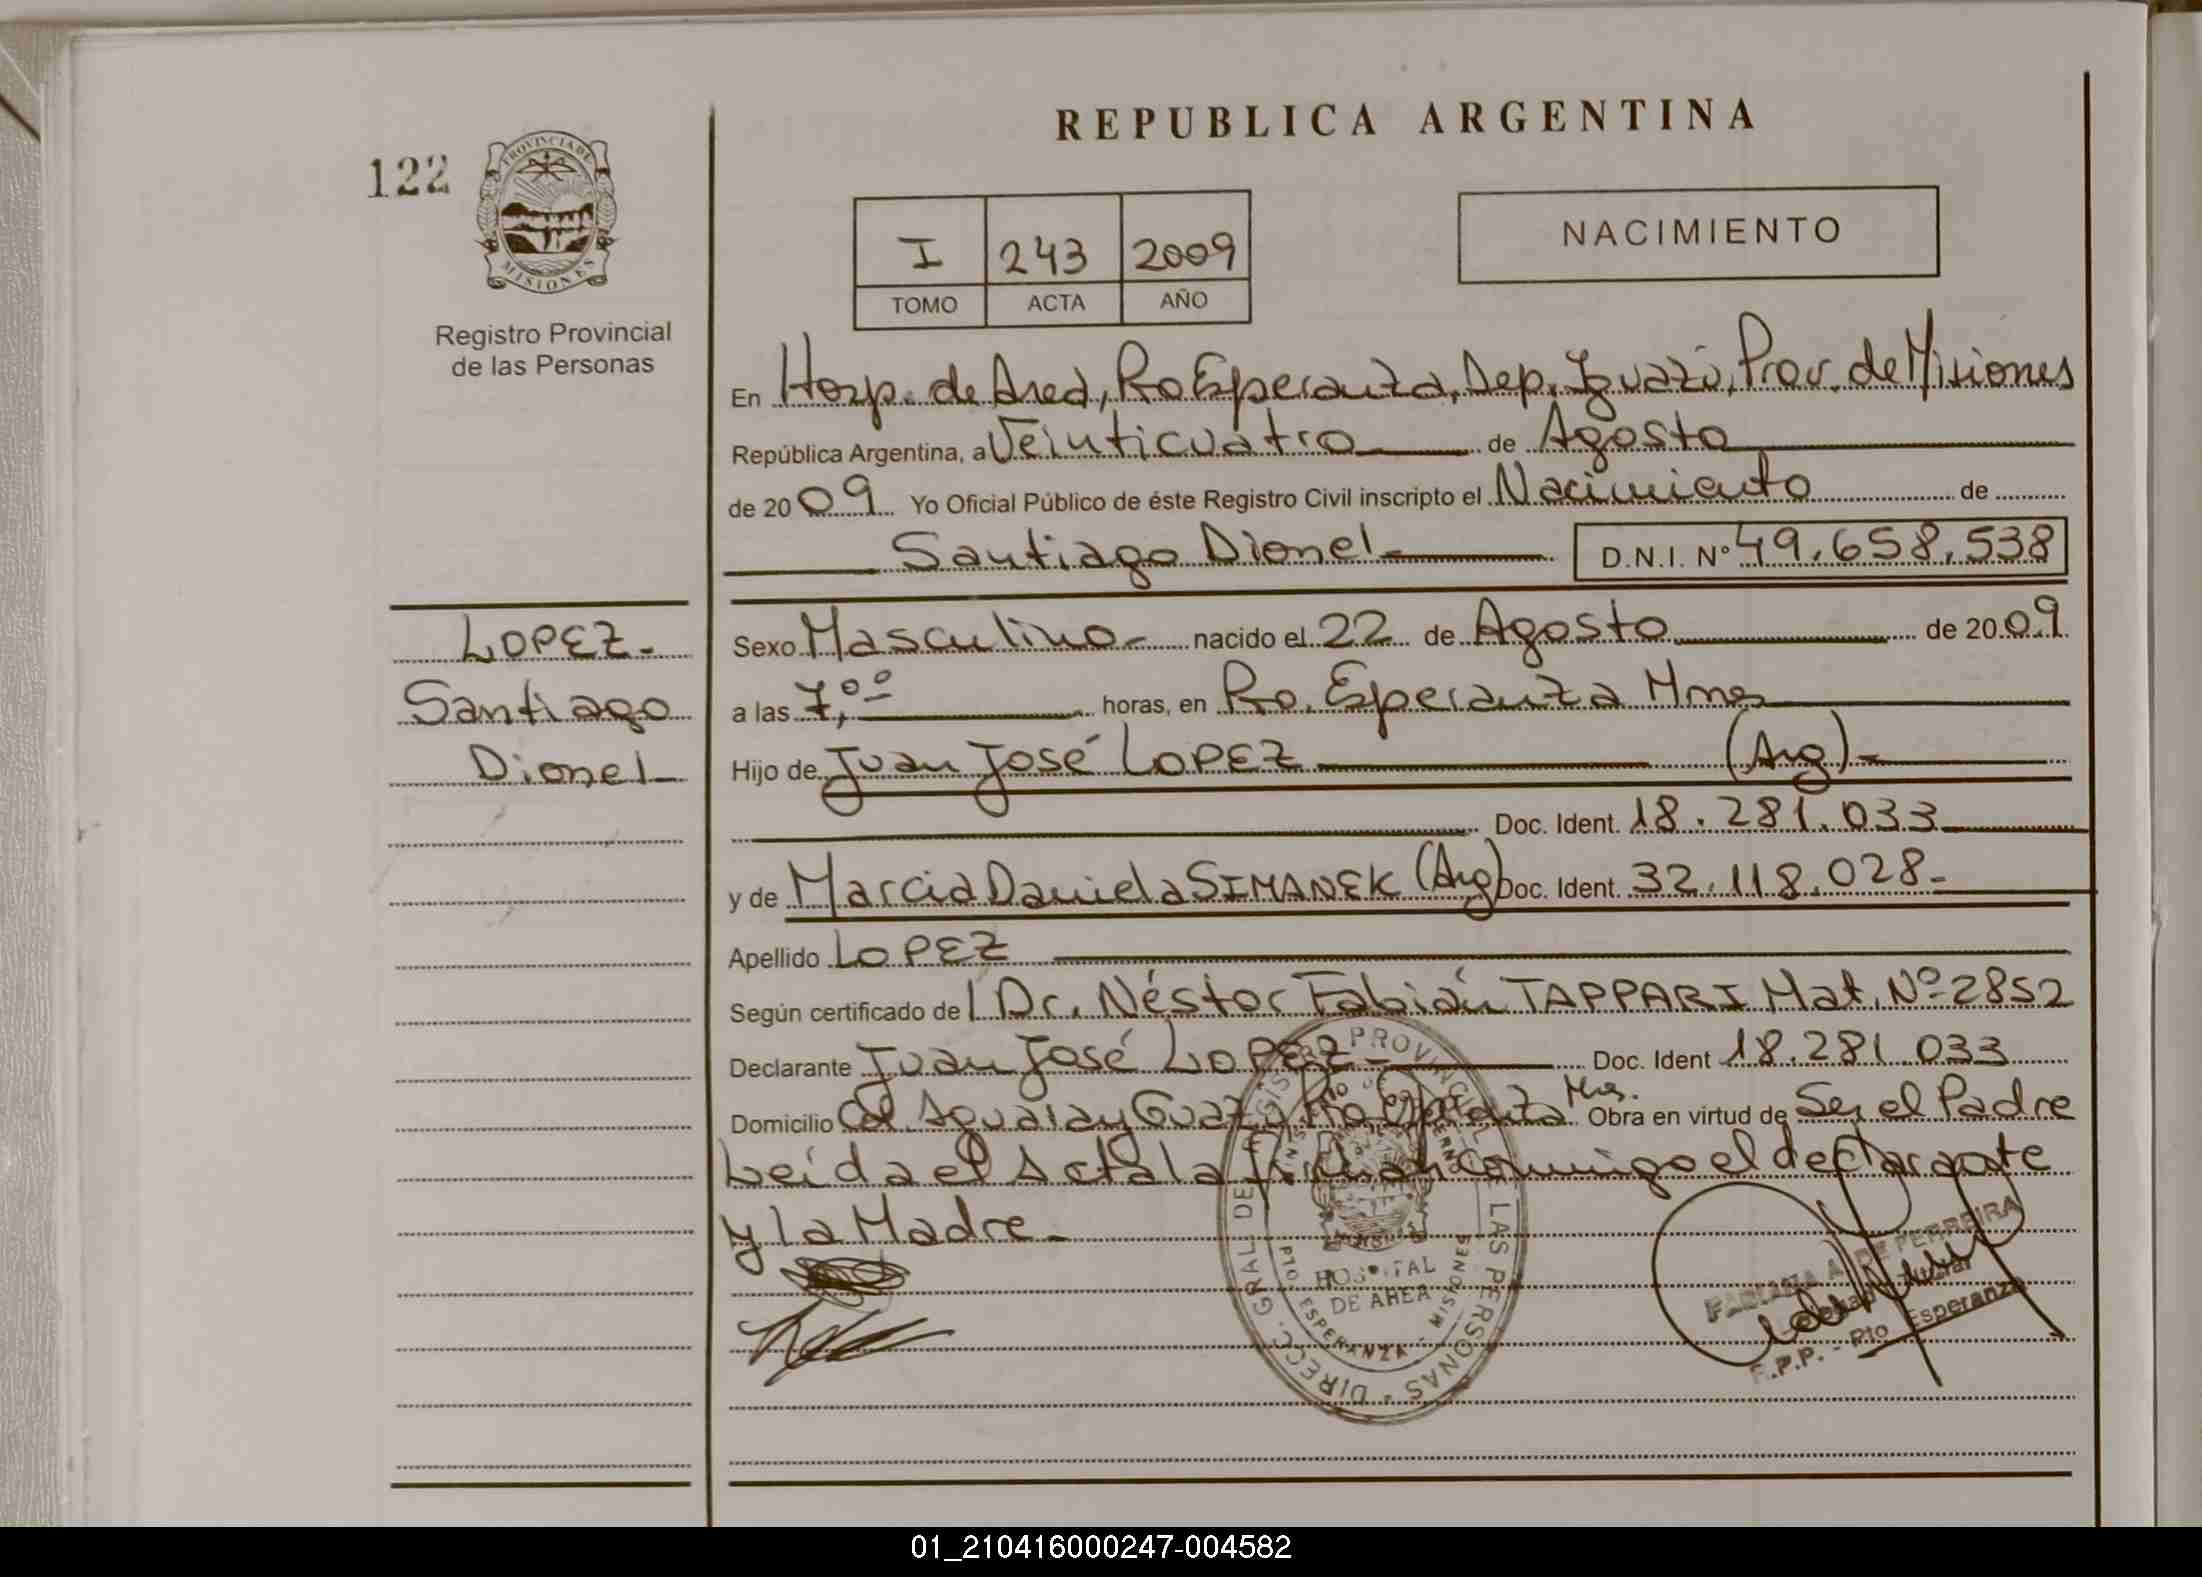 REPUBLICA ARGENTINA
122
PROVINCIA DE
MISIONES
Registro Provincial
de las Personas
I 243 2009
TOMO ACTA AÑO
NACIMIENTO
En Hosp. de Area, Pto Esperanza, Dep. Iguazú, Prov. de Misiones
República Argentina, a Veinticuatro de Agosto
de 2009 Yo Oficial Público de éste Registro Civil inscripto el Nacimiento de
Santiago Dionel D.N.I. Nº 49.658.538
LOPEZ
Santiago
Dionel
Sexo Masculino nacido el 22 de Agosto de 2009
a las 7,ºº horas, en Pto. Esperanza Mnes
Hijo de Juan José LOPEZ (Arg)
Doc. Ident. 18.281.033
y de Marcia Daniela SIMANEK (Arg) Doc. Ident. 32.118.028
Apellido LOPEZ
Según certificado del Dr. Néstor Fabián TAPPARI Mat. Nº 2852
Declarante Juan José LOPEZ Doc. Ident 18.281.033
Domicilio Pto Esperanza Mnes. Obra en virtud de Ser el Padre
Leida el Acta la firman conmigo el declarante
y la Madre
DIRECC. GRAL DE REGISTRO PROVINCIAL DE LAS PERSONAS
HOSPITAL
DE AREA
PTO. ESPERANZA - MISIONES
DE FERREIRA
R.P.P. - Pto Esperanza
01_210416000247-004582